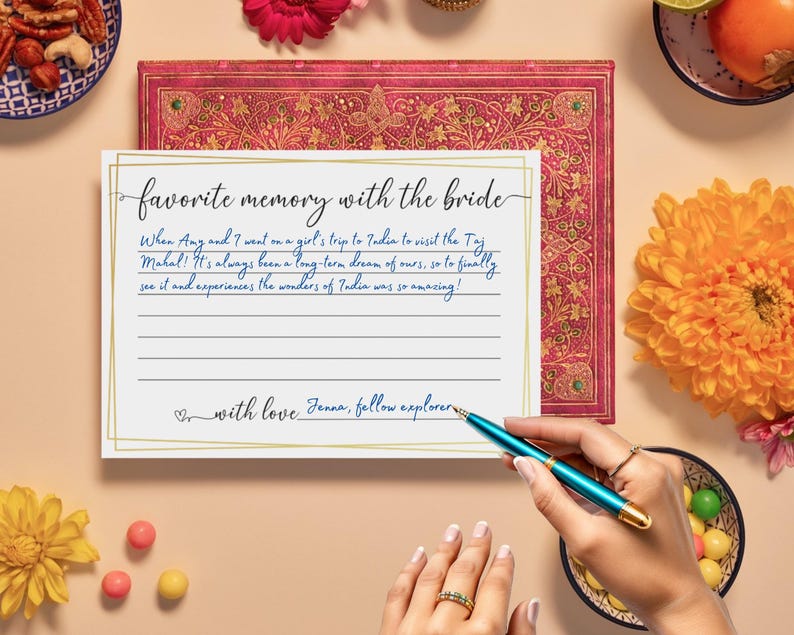 favorite memory with the bride
When Amy and I went on a girl's trip to India to visit the Taj
Mahal! It's always been a long-term dream of ours, so to finally
see it and experiences the wonders of India was so amazing!
with love Jenna, fellow explorer